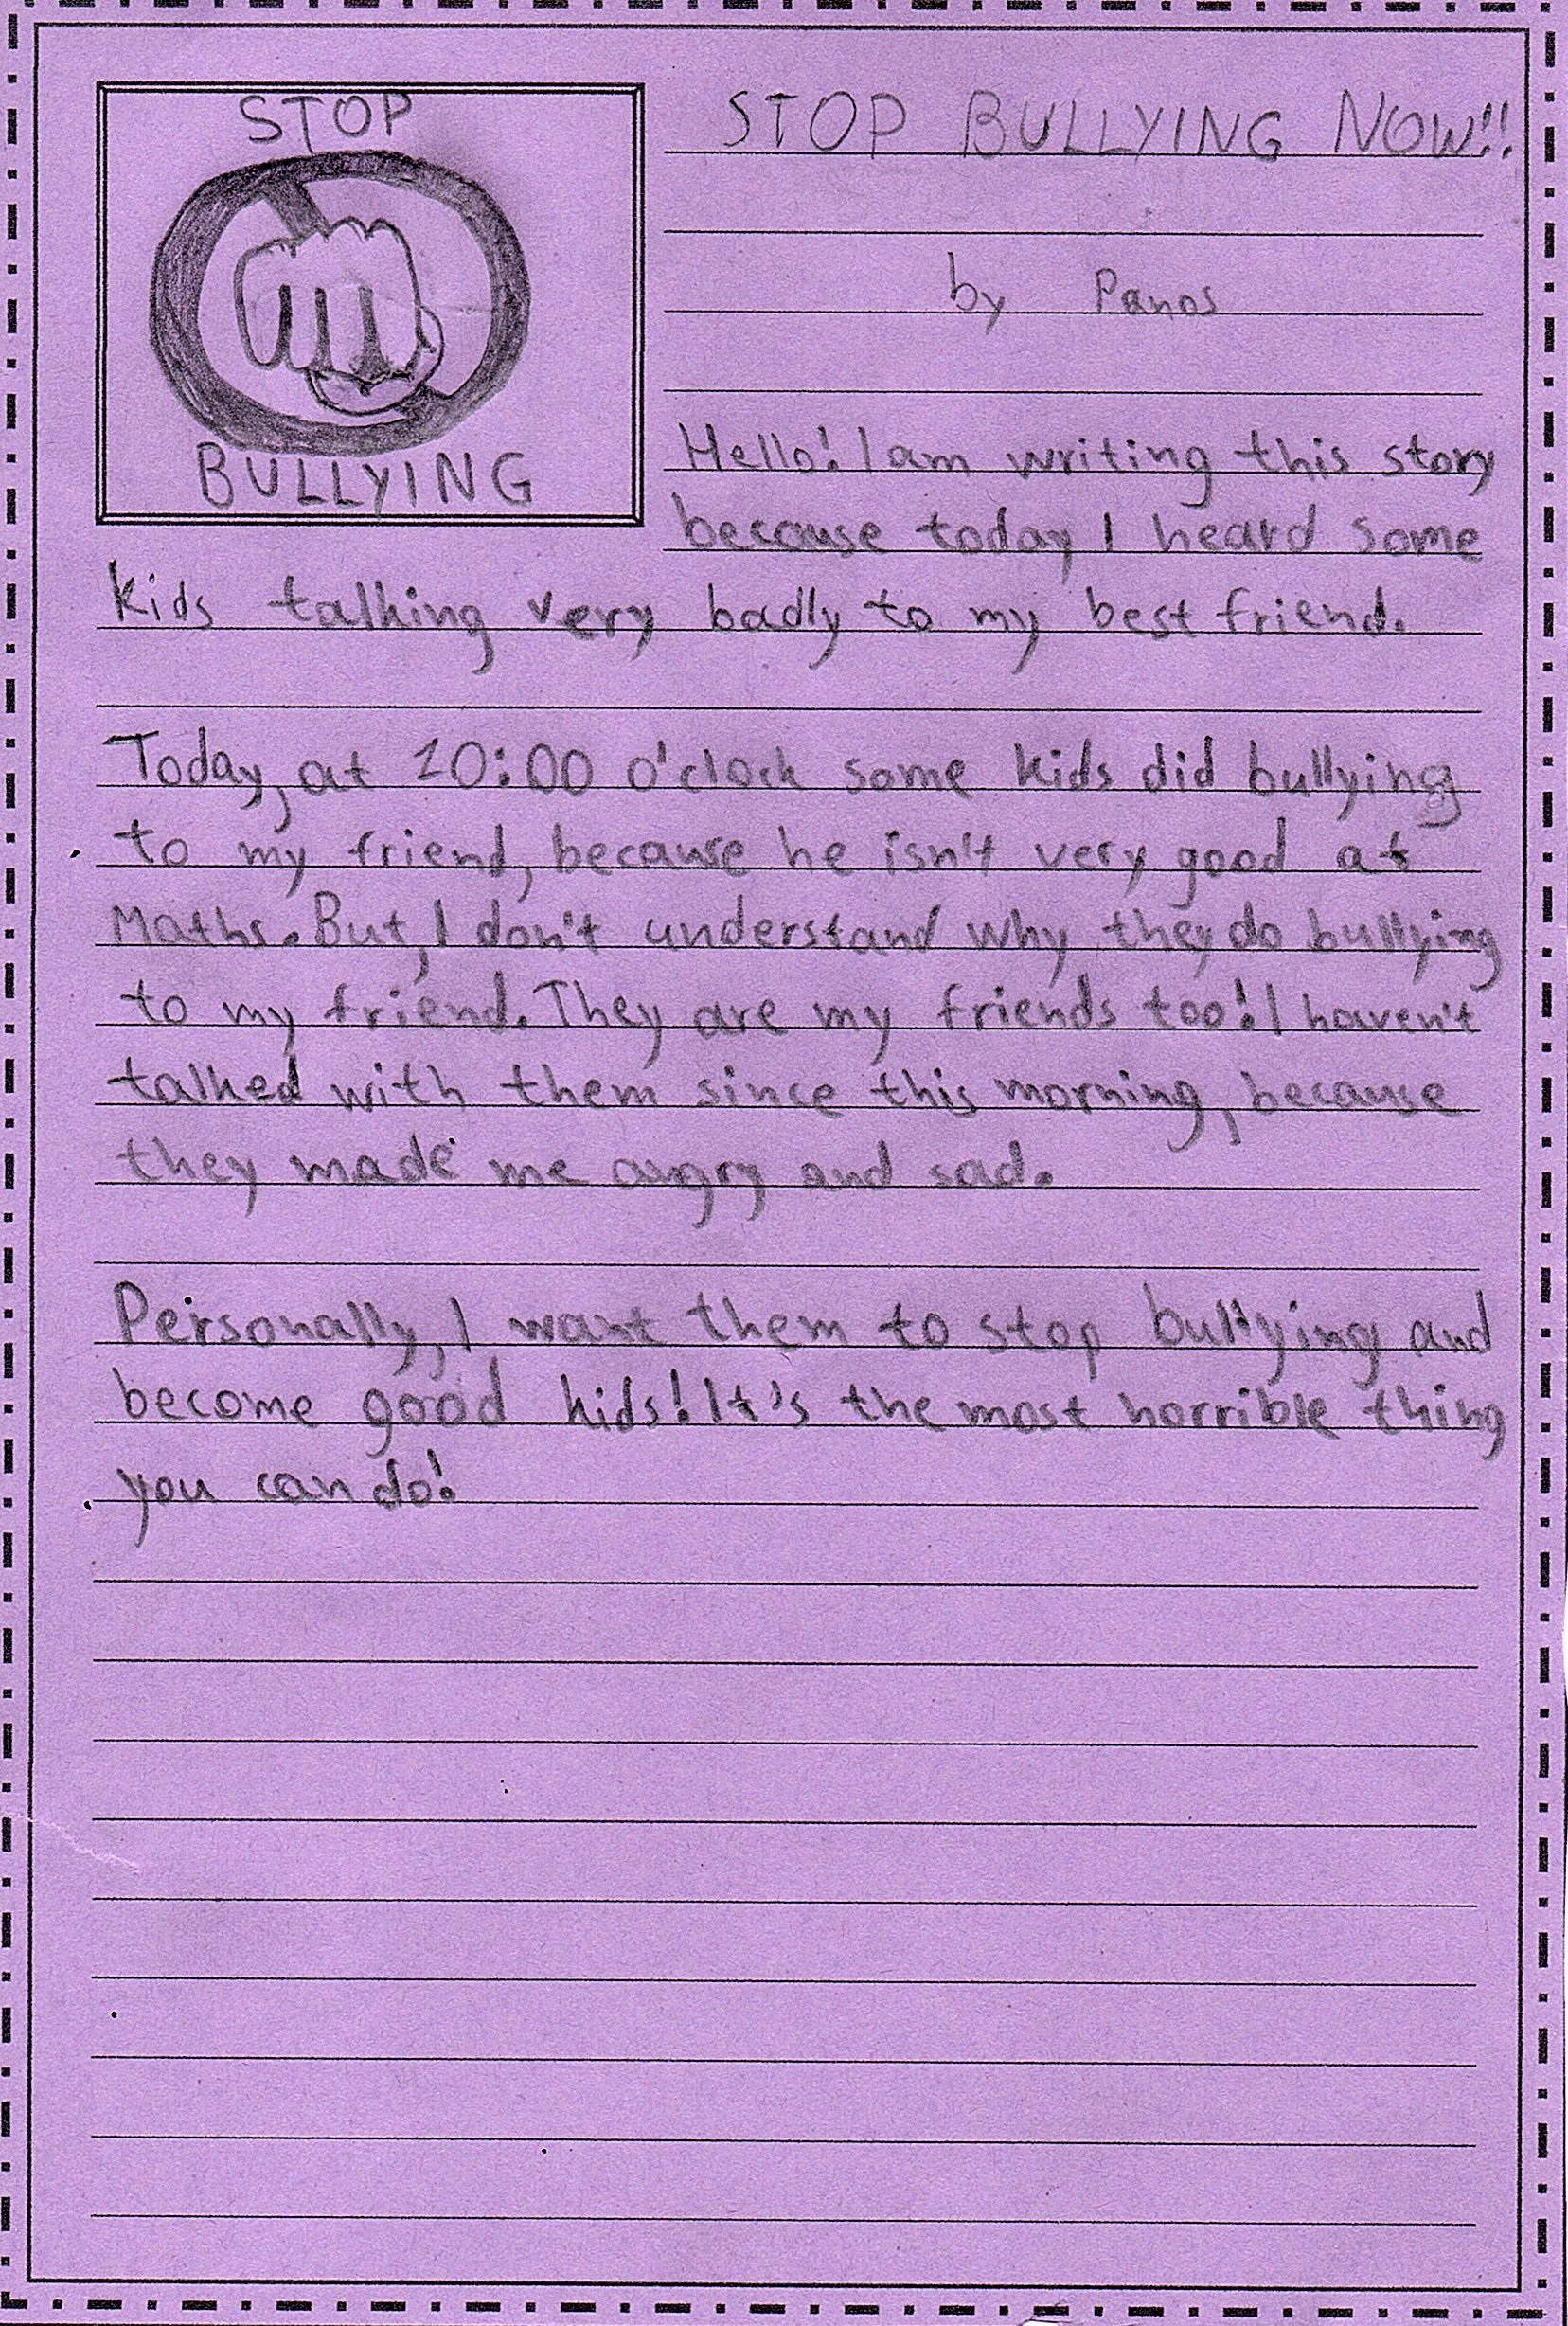 STOP
BULLYING
STOP BULLYING NOW!!
by Panos
Hello! I am writing this story
because today I heard some
kids talking very badly to my best friend.
Today, at 10:00 o'clock some kids did bullying
to my friend, because he isn't very good at
Maths. But, I don't understand why they do bullying
to my friend. They are my friends too! I haven't
talked with them since this morning, because
they made me angry and sad.
Personally, I want them to stop bullying and
become good kids! It's the most horrible thing
you can do!